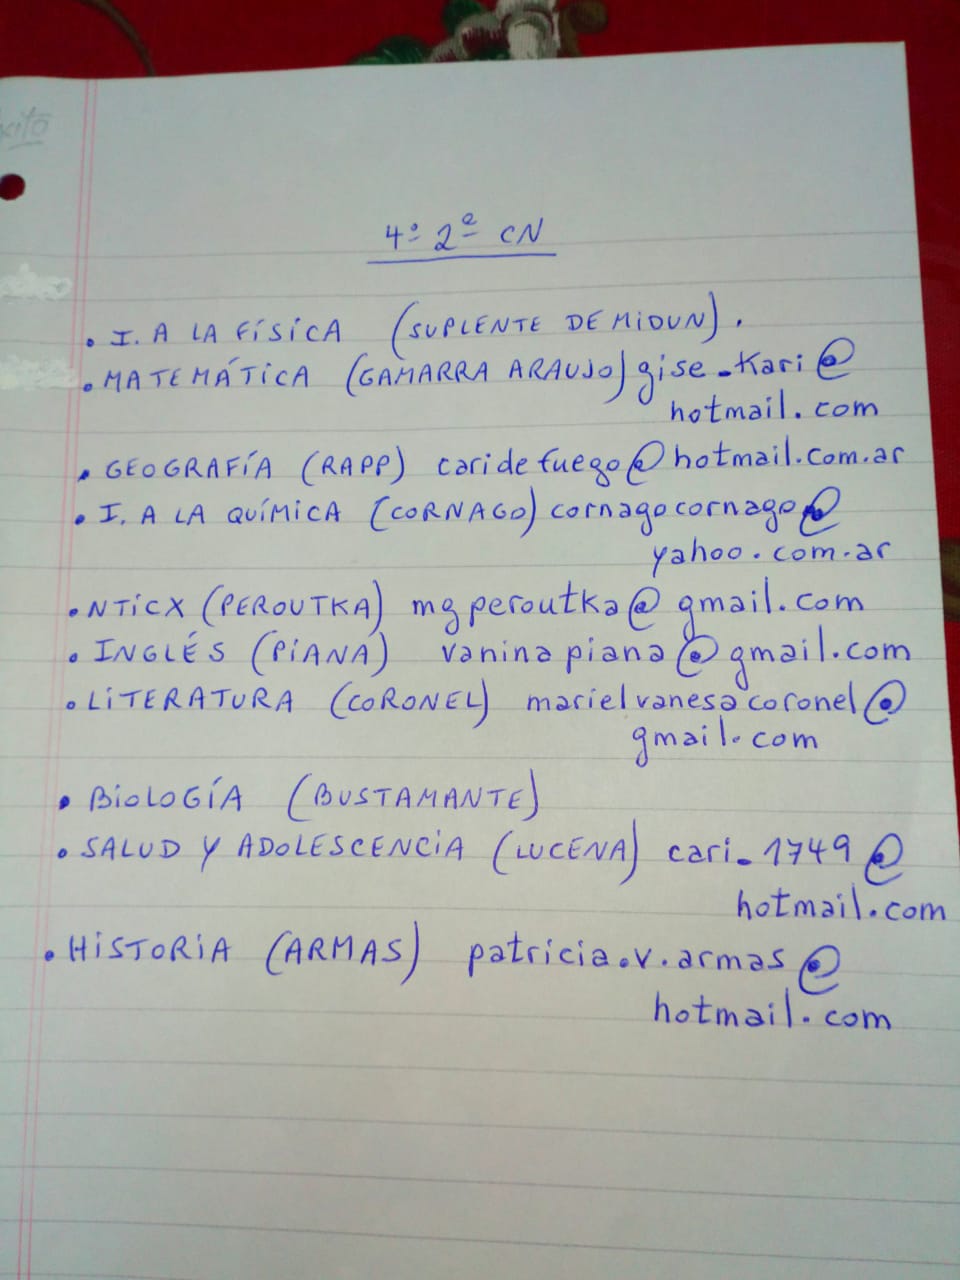 4º 2ª CN
• I. A LA FÍSICA (SUPLENTE DE MIDUN).
• MATEMÁTICA (GAMARRA ARAUJO) gise_kari@
hotmail.com
• GEOGRAFÍA (RAPP) caridefuego@hotmail.com.ar
• I. A LA QUÍMICA (CORNAGO) cornagocornago@
yahoo.com.ar
• NTICX (PEROUTKA) mgperoutka@gmail.com
• INGLÉS (PIANA) vaninapiana@gmail.com
• LITERATURA (CORONEL) marielvanesacoronel@
gmail.com
• BIOLOGÍA (BUSTAMANTE)
• SALUD Y ADOLESCENCIA (LUCENA) cari_1749@
hotmail.com
• HISTORIA (ARMAS) patricia.v.armas@
hotmail.com